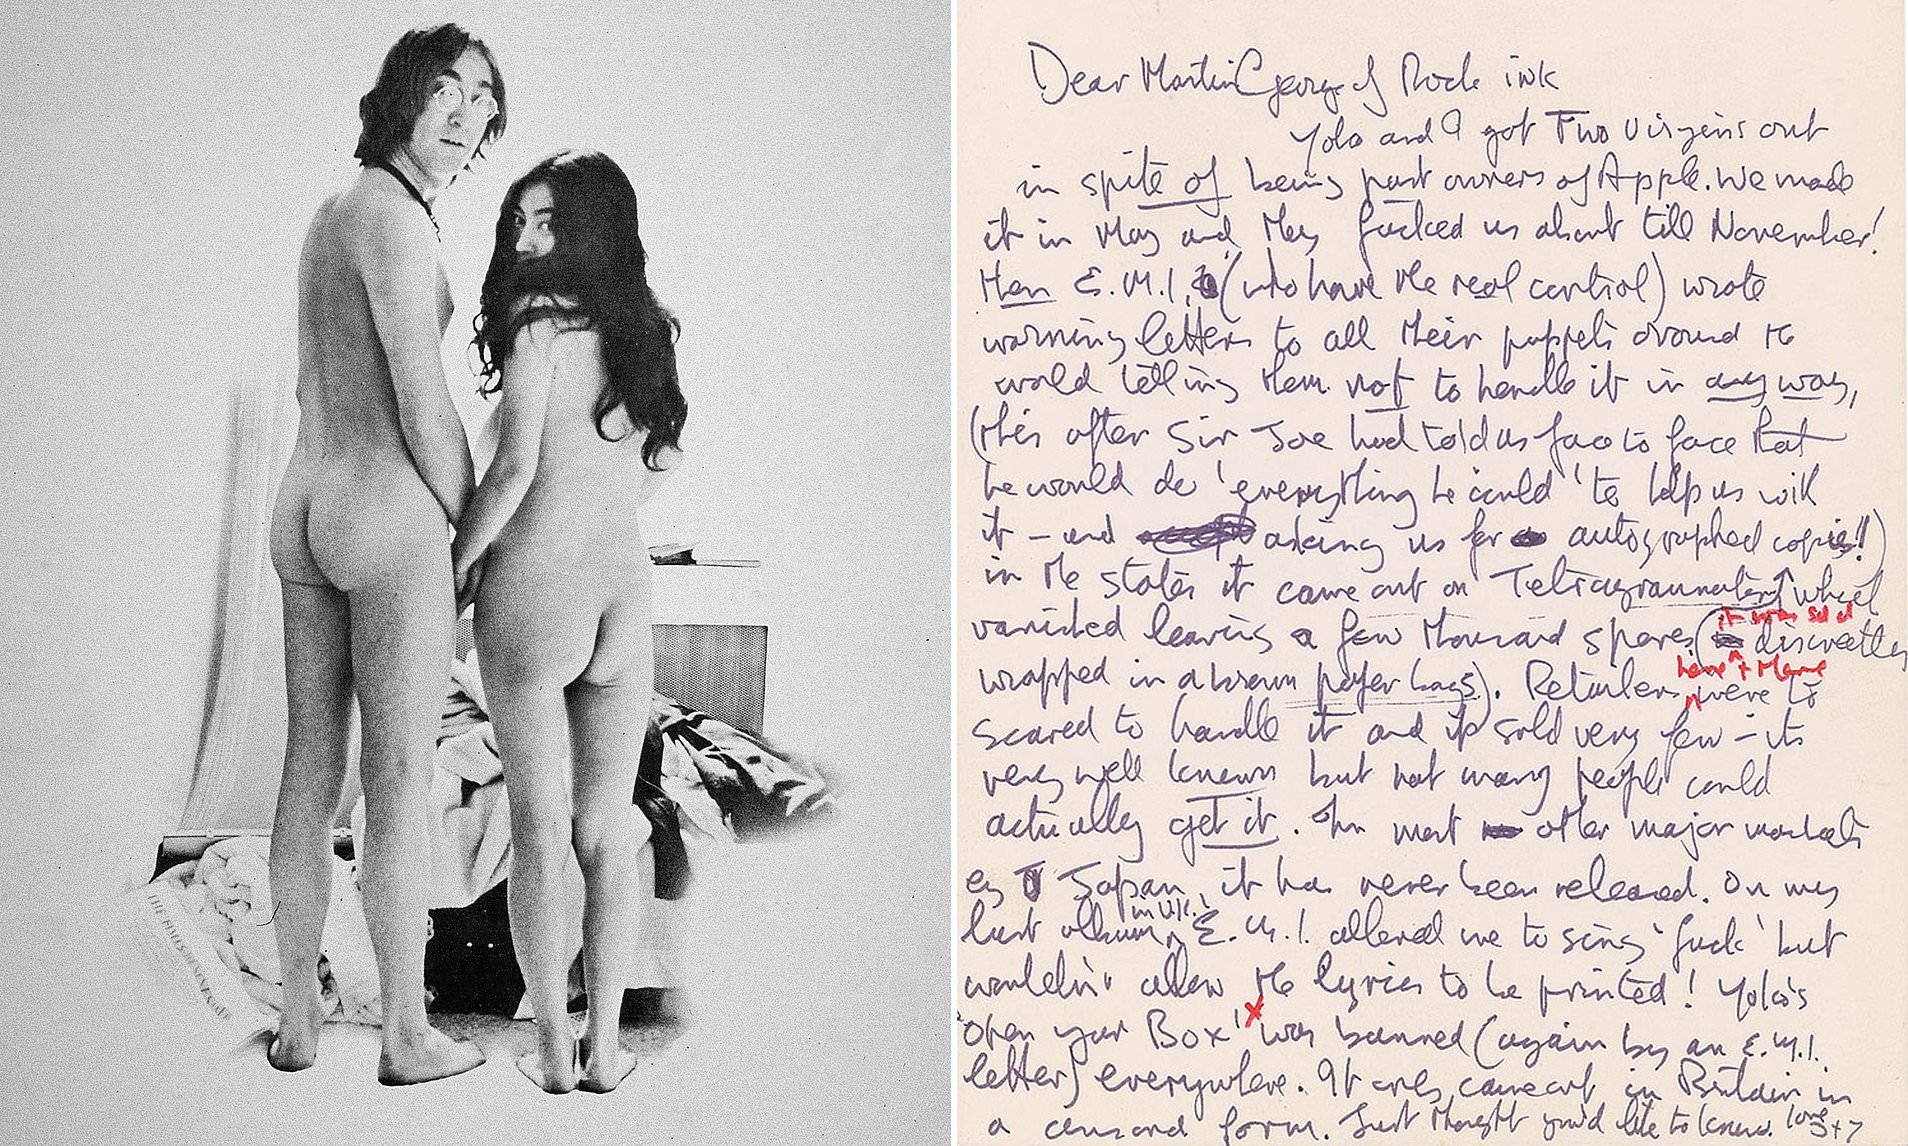 THE TIMES
Dear Martin George of Rock ink
Yoko and I got Two Virgins out
in spite of being part owners of Apple. We made
it in May and they fucked us about till November!
then E.M.I. (who have the real control) wrote
warning letters to all their puppets around the
world telling them not to handle it in any way,
(this after Sir Joe had told us face to face that
he would do 'everything he could' to help us with
it – and asking us for autographed copies!!)
in the states it came out on Tetragrammaton which
it was sold
vanished leaving a few thousand spares ( discreetly
here + there
wrapped in a brown paper bags). Retailers were to
scared to handle it and it sold very few – its
very well known but not many people could
actually get it. In most other major markets
eg Japan, it has never been released. On my
in U.K.
last album, E.M.I. allowed me to sing 'fuck' but
wouldn't allow the lyrics to be printed! Yoko's
x
'Open your Box' was banned (again by an E.M.I.
letter) everywhere. It only came out in Britain in
a censored form. Just thought you'd like to know. love